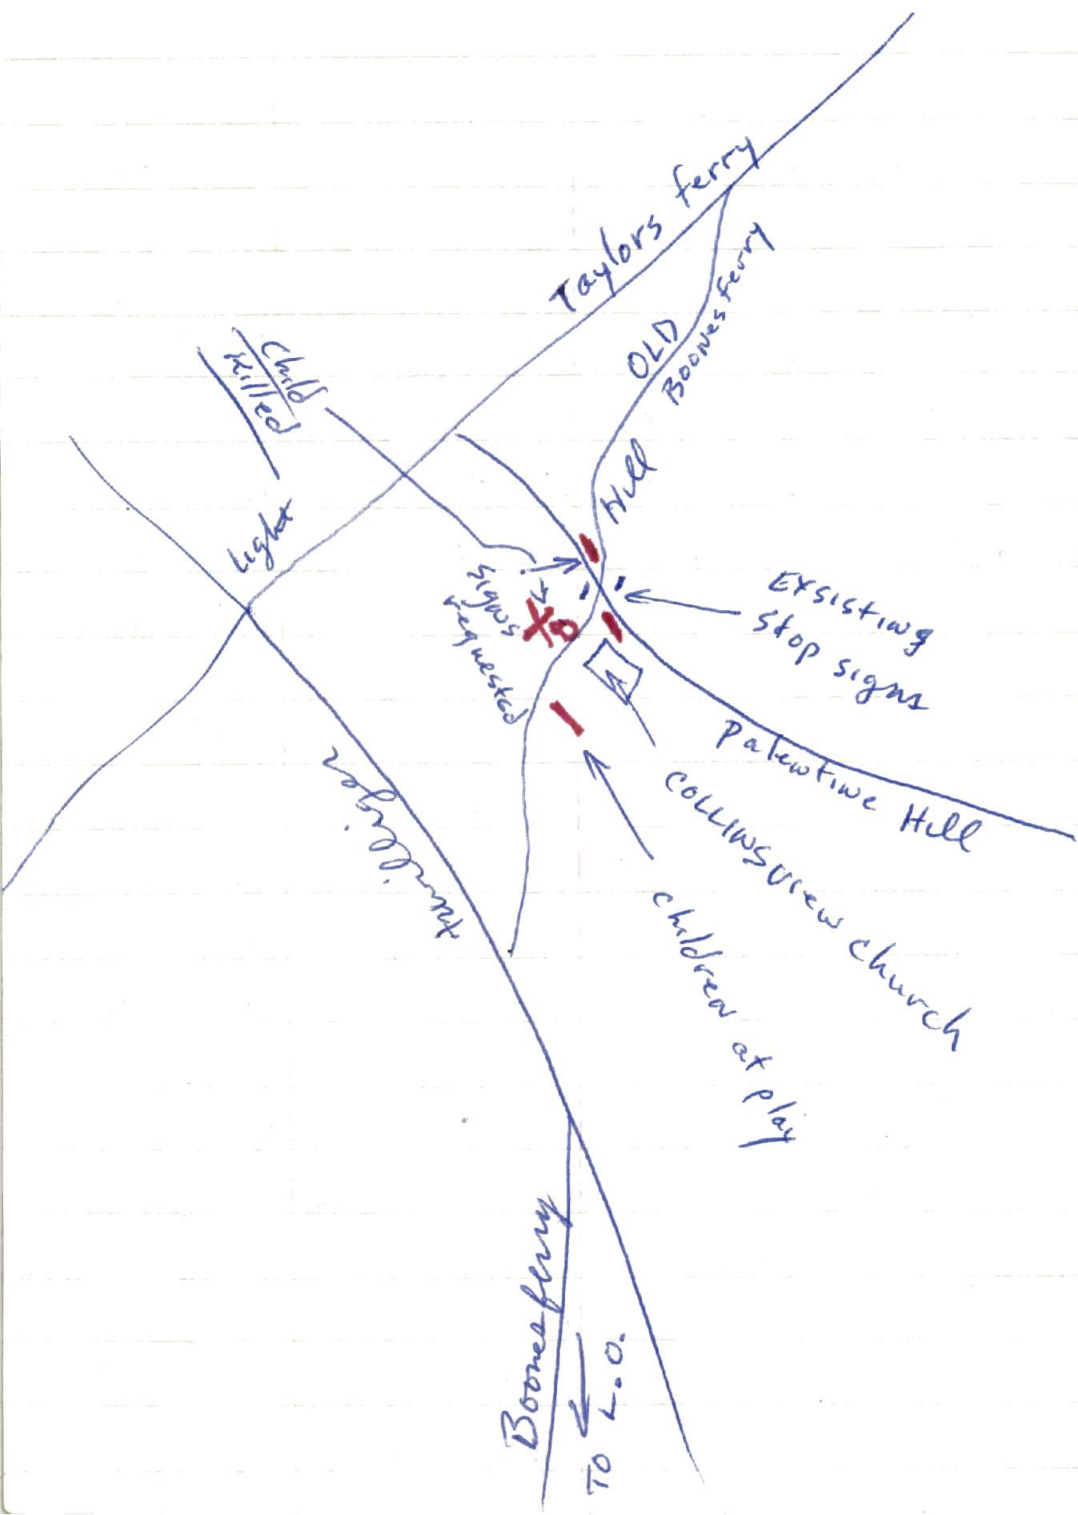 Taylors Ferry
OLD
Boones Ferry
Child
Killed
Hill
Light
Signs
requested
Exsisting
Stop signs
Palentine Hill
Terwilligar
Collinsview church
children at play
Boonesferry
TO L.O.